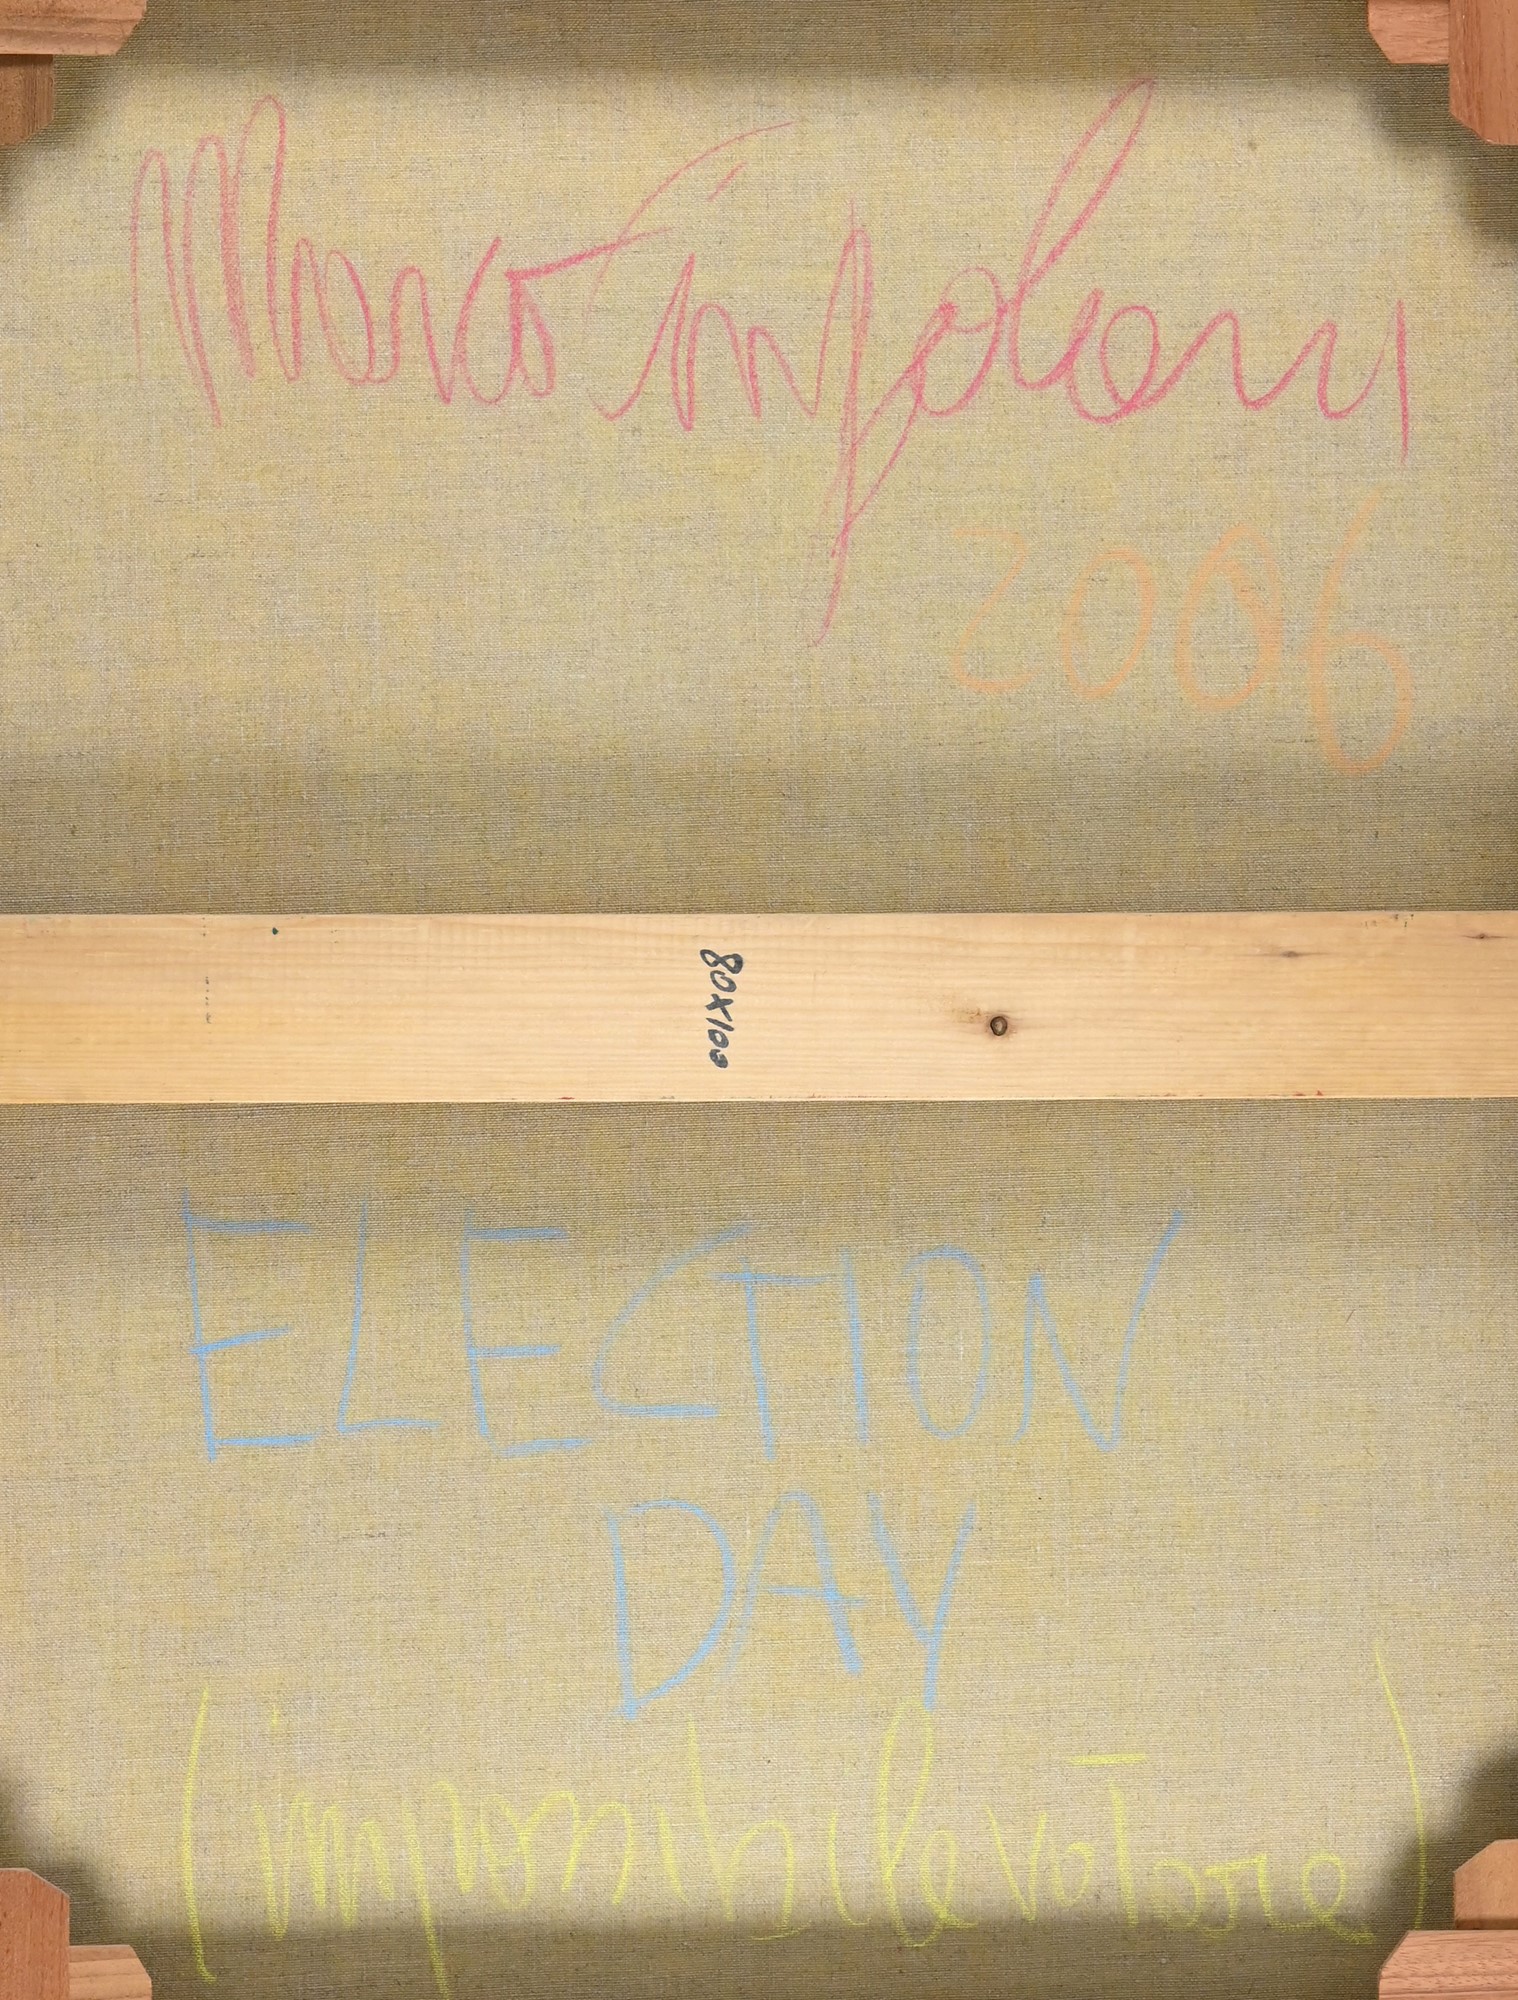 Marco Tirpoleni
2006
80X100
ELECTION
DAY
(impossibile votare)